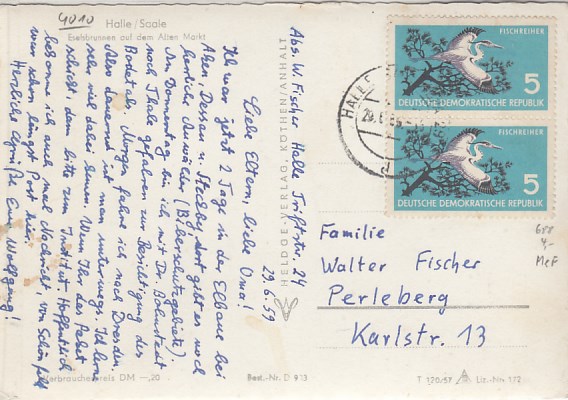 4010
Halle/Saale
Eselsbrunnen auf dem Alten Markt
Abs. W. Fischer Halle Triftstr. 24
29.6.59
Liebe Eltern, liebe Oma!
Ich war jetzt 2 Tage in der Elbaue bei
Aken, Dessau u. Steckby, dort gibt es noch
herrliche Auwälder (Biberschutzgebiete).
Am Donnerstag bin ich mit Dr. Bohnstedt
nach Thale gefahren zur Besichtigung des
Bodetals. Morgen fahre ich nach Dresden.
Also dauernd ist man unterwegs. Ich lerne
sehr viel dabei kennen. Wenn Ihr das Paket
schickt, dann bitte zum Institut. Hoffentlich
bekomme ich auch mal Nachricht, von
war schon längst Post hier.
Herzliche Grüße Euer Wolfgang!
HELDGE-VERLAG, KÖTHEN/ANHALT
Verbraucherpreis DM —,20
Best.-Nr. D 913
T 120/57
Liz.-Nr. 172
FISCHREIHER
5
DEUTSCHE DEMOKRATISCHE REPUBLIK
FISCHREIHER
5
DEUTSCHE DEMOKRATISCHE REPUBLIK
HALLE
Familie
Walter Fischer
Perleberg
Karlstr. 13
4,-
MeF